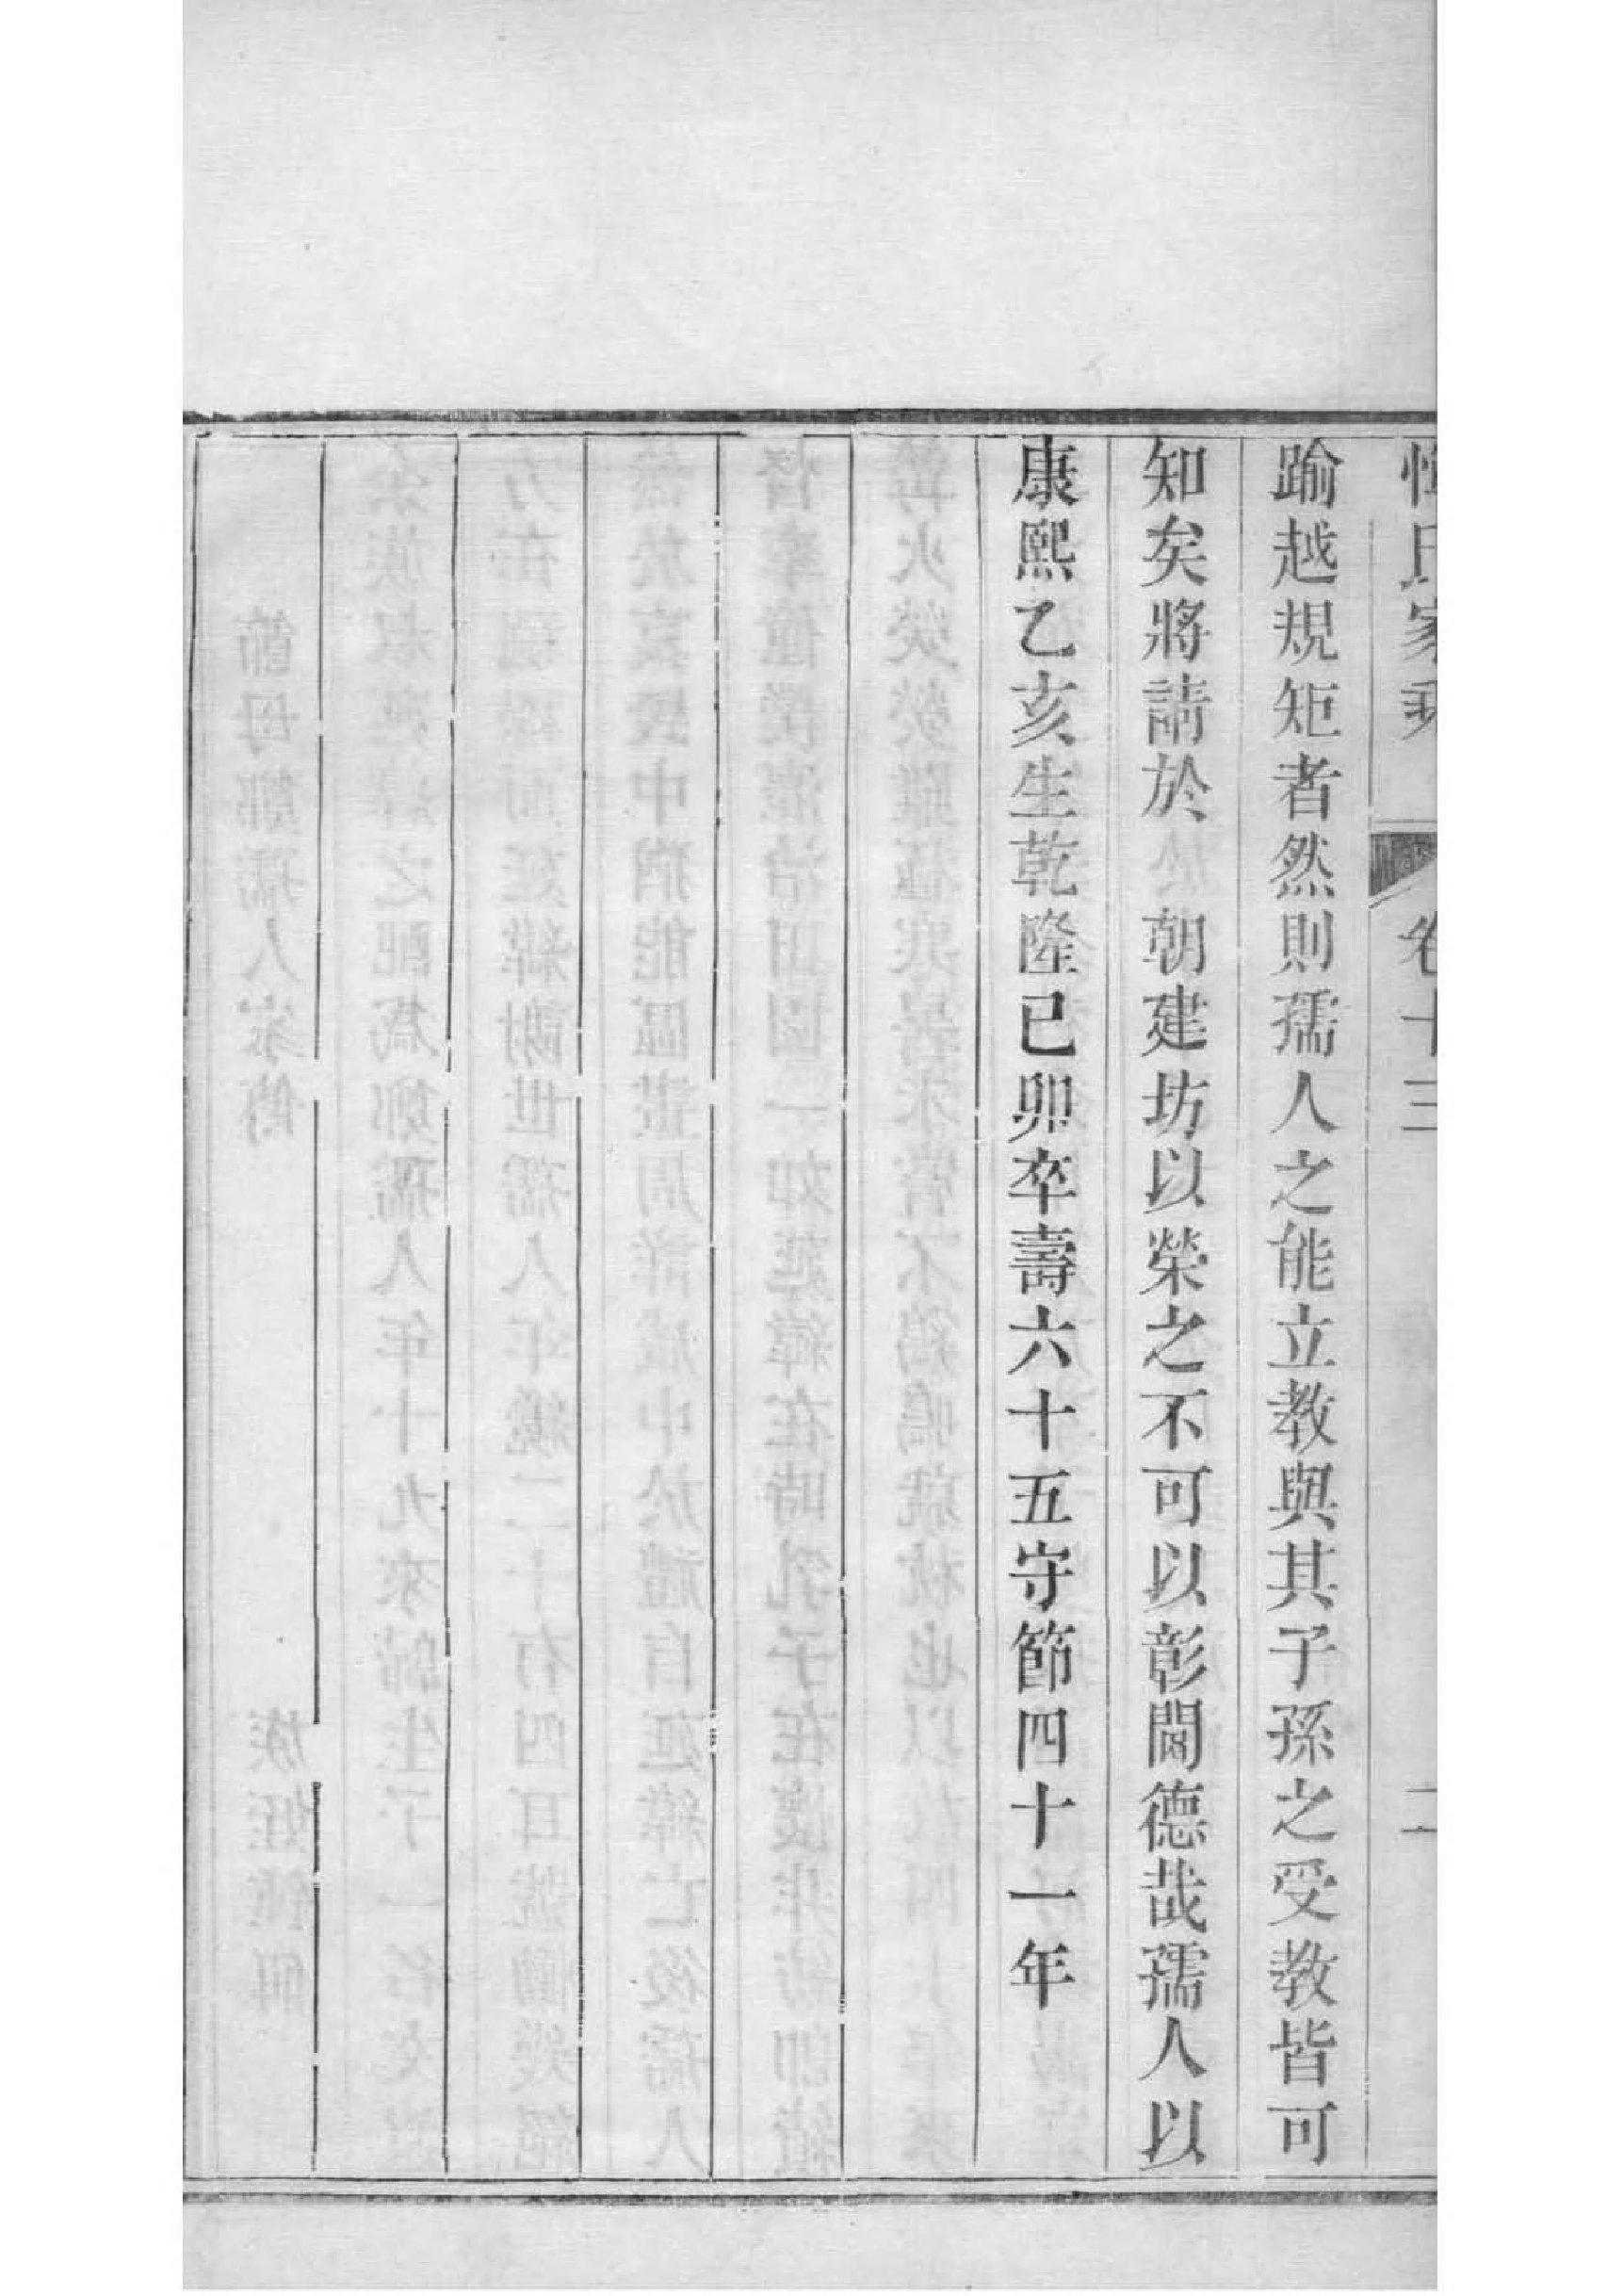 惲氏家乘 卷十三 二
踰越規矩者然則孺人之能立教與其子孫之受教皆可
知矣將請於 朝建坊以榮之不可以彰閫德哉孺人以
康熙乙亥生乾隆己卯卒壽六十五守節四十一年